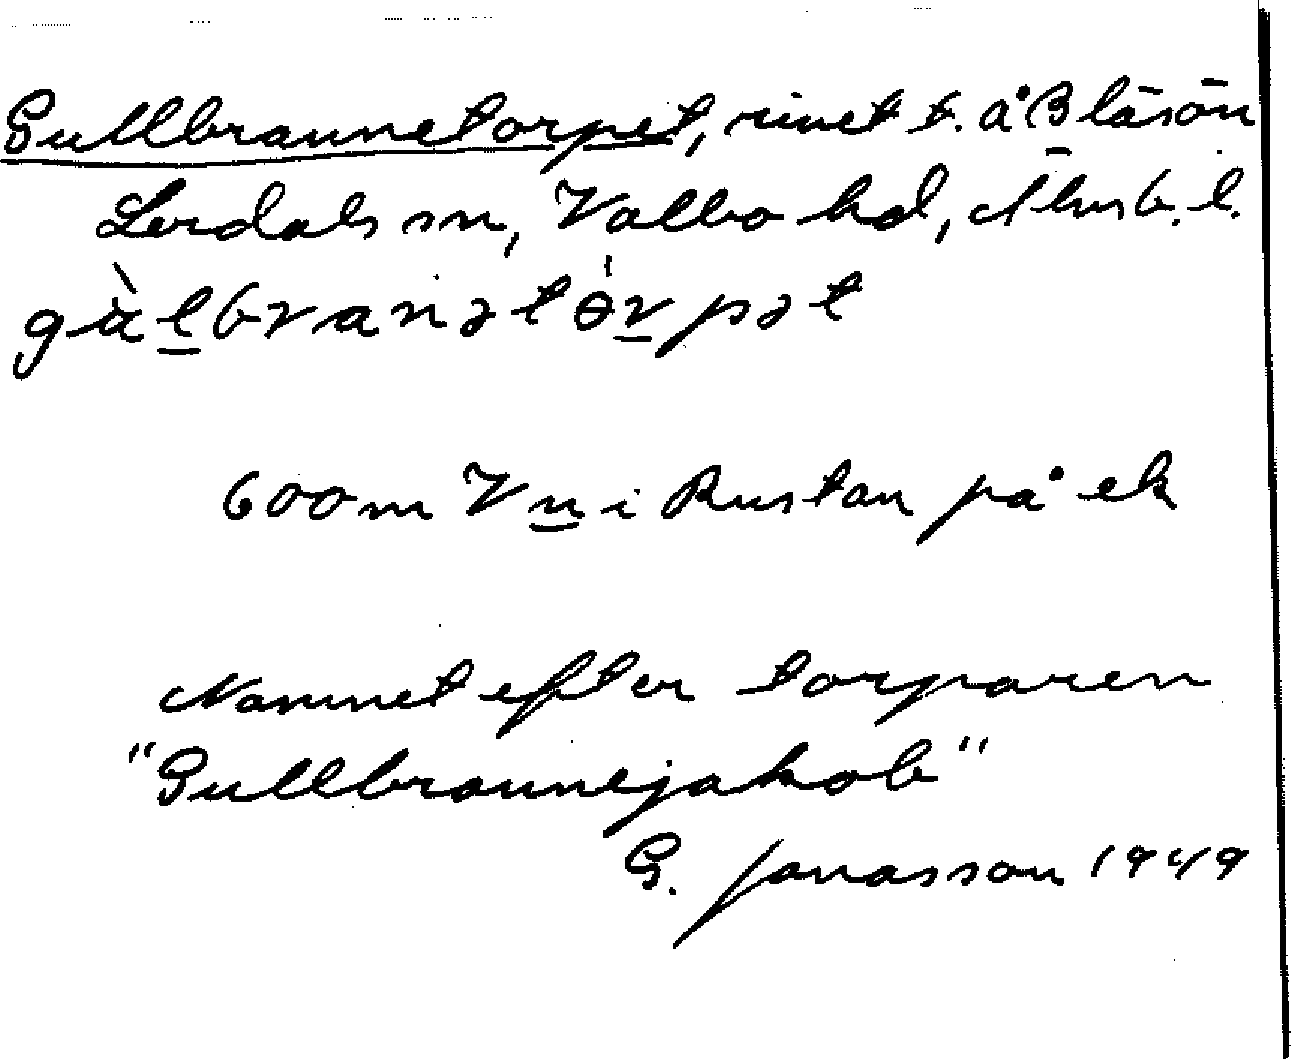 Gullbrannetorpet, rivet t. å Bläsön
Lerdals sn, Valbo hd, Älvsb. l.
gùlbranətörpət
600 m V n i Rustan på ek
Namnet efter torparen
"Gullbrannejakob"
G. Jonasson 1949